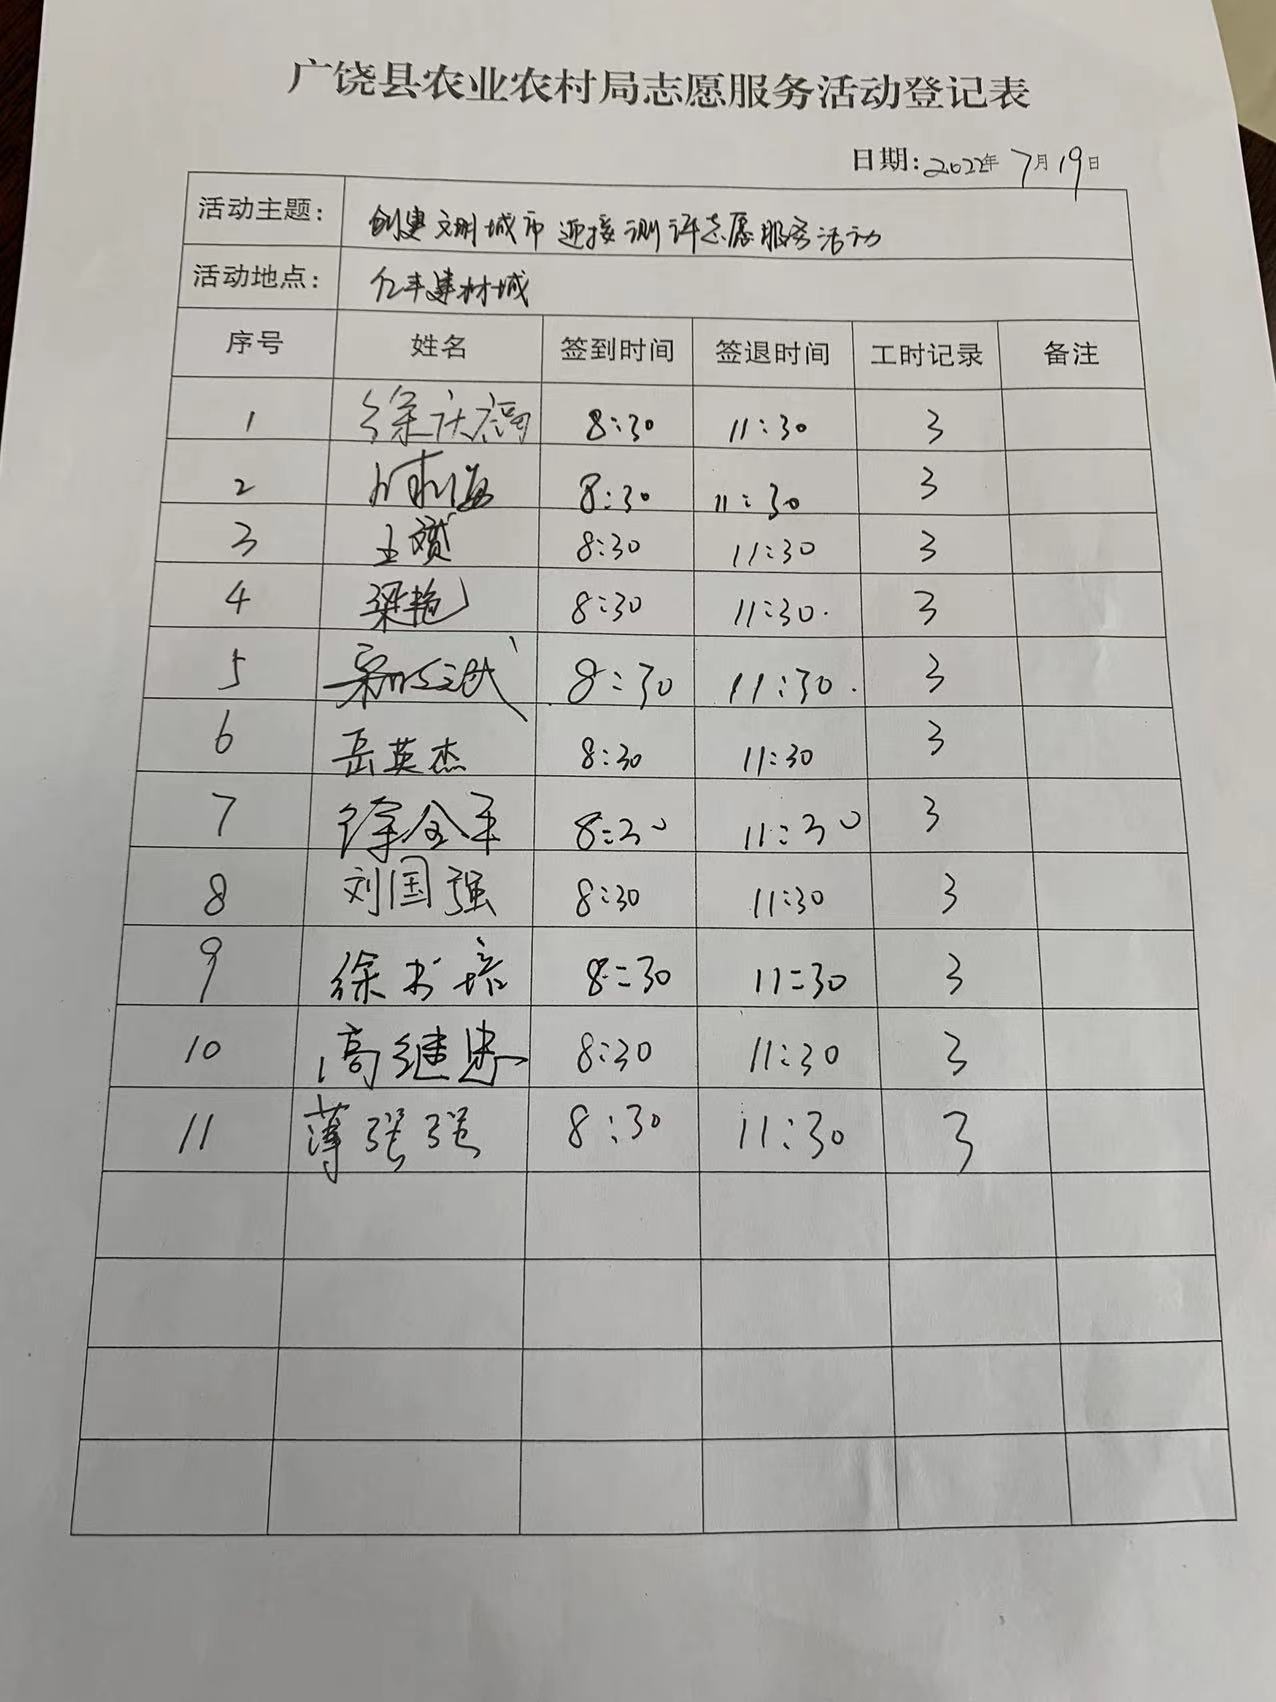 广饶县农业农村局志愿服务活动登记表
日期:2022年 7月19日
活动主题: 创建文明城市迎接测评志愿服务活动
活动地点: 亿丰建材城
序号 姓名 签到时间 签退时间 工时记录 备注
1 徐庆 8:30 11:30 3
2 8:30 11:30 3
3 王 8:30 11:30 3
4 梁艳 8:30 11:30. 3
5 8:30 11:30. 3
6 岳英杰 8:30 11:30 3
7 徐金平 8:30 11:30 3
8 刘国强 8:30 11:30 3
9 徐书培 8:30 11:30 3
10 高继忠 8:30 11:30 3
11 薄强强 8:30 11:30 3